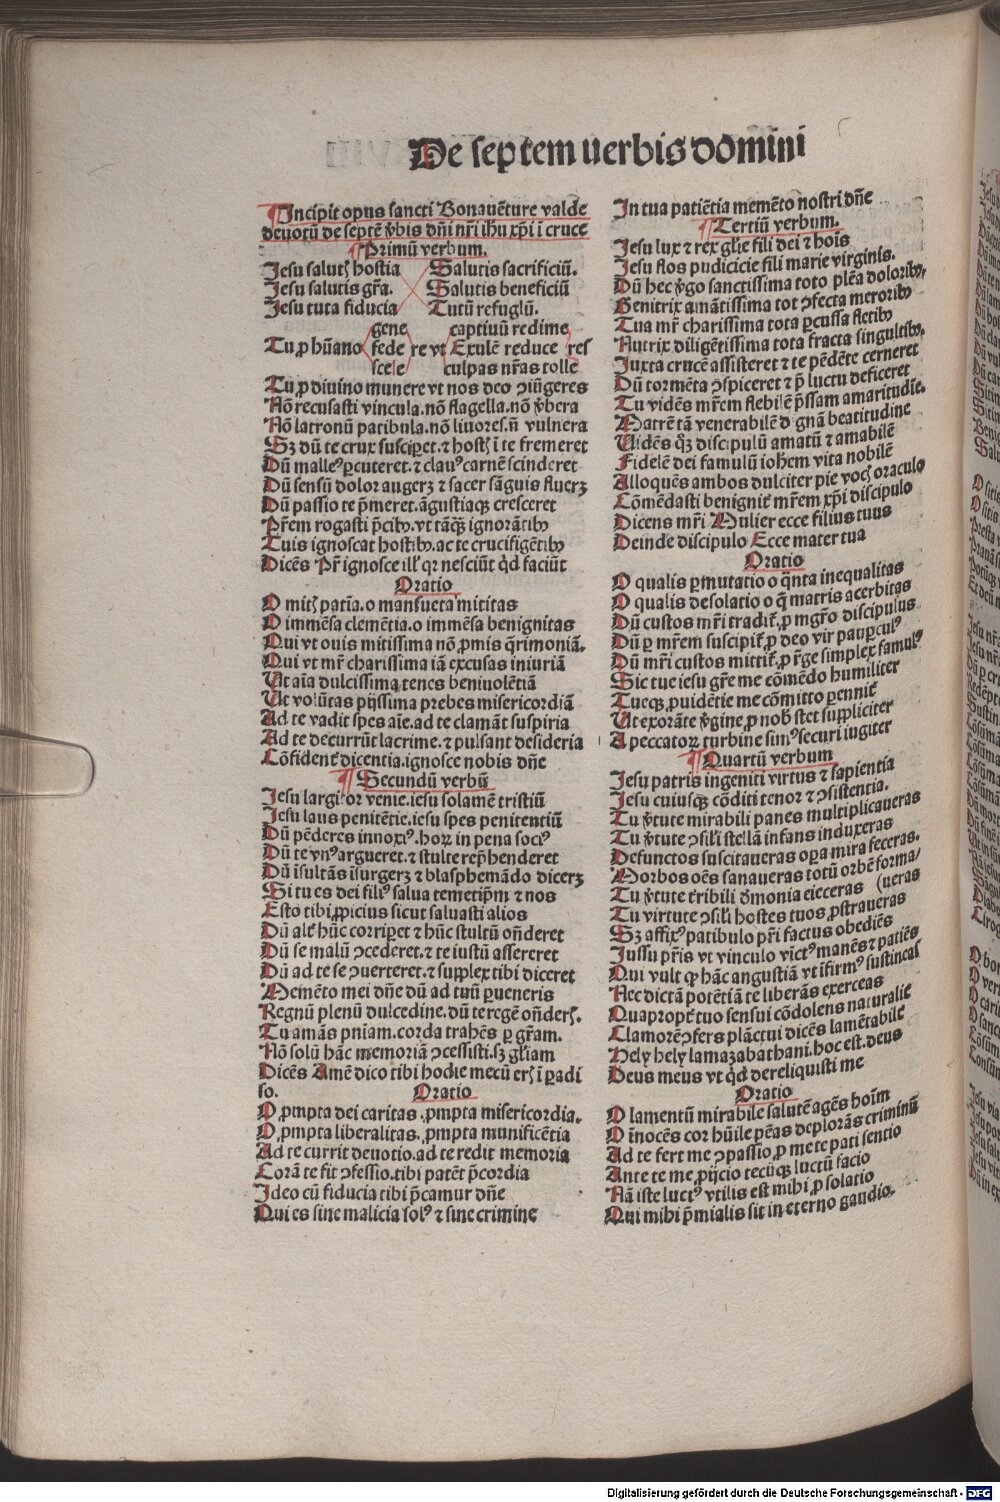 De septem uerbis domini
¶Incipit opus sancti Bonauēture valde
deuotū de septē v̄bis dn̄i nr̄i ihu xp̄i ī cruce
¶Primū verbum.
Jesu salutꝭ hostia Salutis sacrificiū.
Jesu salutis gr̄a. Salutis beneficiū
Jesu tuta fiducia Tutū refugiū.
gene captiuū redime
Tu ꝓ hūano fede re vt Exulē reduce res
scele culpas nr̄as tolle
Tu ꝓ diuino munere vt nos deo ↄiūgeres
Nō recusasti vincula. nō flagella. nō v̄bera
Nō latronū patibula. nō liuores. n̄ vulnera
Sꝫ dū te crux susciꝑet. ⁊ hostꝭ ī te fremeret
Dū malleꝰ ꝑcuteret. ⁊ clauꝰ carnē scinderet
Dū sensū dolor augerꝫ ⁊ sacer sāguis fluerꝫ
Dū passio te p̄meret. āgustiaqꝫ cresceret
Pr̄em rogasti p̄cibꝫ. vt tāqꝫ ignorātibꝫ
Tuis ignoscat hostibꝫ. ac te crucifigētibꝫ
Dicēs Pr̄ ignosce ill' qr nesciūt qd̄ faciūt
Oratio
O mitꝭ patīa. o mansueta mititas
O immēsa clemētia. o immēsa benignitas
Qui vt ouis mitissima nō ꝓmis q̄rimoniā.
Qui vt mr̄ charissima iā excusas iniuriā
Ut aīa dulcissima tenes beniuolētiā
Ut volūtas pijssima prebes misericordiā
Ad te vadit spes aīe. ad te clamāt suspiria
Ad te decurrūt lacrime. ⁊ pulsant desideria
Cōfident̄ dicentia. ignosce nobis dn̄e
¶Secundū verbū
Jesu largitor venie. iesu solamē tristiū
Jesu laus penitētie. iesu spes penitentiū
Dū pēderes innoxiꝰ. hoꝝ in pena sociꝰ
Dū te vnꝰ argueret. ⁊ stulte rep̄henderet
Dū īsultās īsurgerꝫ ⁊ blasphemādo dicerꝫ
Si tu es dei filiꝰ salua temetip̄m ⁊ nos
Esto tibi ꝓpicius sicut saluasti alios
Dū alt̄ hūc corriꝑet ⁊ hūc stultū on̄deret
Dū se malū ↄcederet. ⁊ te iustū assereret
Dū ad te se ↄuerteret. ⁊ supplex tibi diceret
Memēto mei dn̄e dū ad tuū ꝑueneris
Regnū plenū dulcedine. dū te regē on̄derꝭ.
Tu amās pniam. corda trahēs ꝑ gr̄am.
Nō solū hāc memoriā ↄcessisti. sꝫ gl̄iam
Dicēs Amē dico tibi hodie mecū erꝭ ī ꝑadi
so. Oratio
O ꝓmpta dei caritas. ꝓmpta misericordia.
O ꝓmpta liberalitas. ꝓmpta munificētia
Ad te currit deuotio. ad te redit memoria
Corā te fit ↄfessio. tibi patēt p̄cordia
Ideo cū fiducia tibi p̄camur dn̄e
Qui es sine malicia solꝰ ⁊ sine crimine
In tua patiētia memēto nostri dn̄e
¶Tertiū verbum.
Jesu lux ⁊ rex gl̄ie fili dei ⁊ hoīs
Jesu flos pudicicie fili marie virginis.
Dū hec v̄go sanctissima toto plēa doloribꝫ,
Genitrix amātissima tot ↄfecta meroribꝫ
Tua mr̄ charissima tota ꝑcussa fletibꝫ
Nutrix diligētissima tota fracta singultibꝫ,
Juxta crucē assisteret ⁊ te pēdēte cerneret
Dū tormēta ↄspiceret ⁊ p̄ luctu deficeret
Tu vidēs mr̄em flebilē p̄ssam amaritudīe.
Matrē tā venerabilē d̄ gnā beatitudine
Uidēs qꝫ discipulū amatū ⁊ amabilē
Fidelē dei famulū ioh̄em vita nobilē
Alloquēs ambos dulciter pie vocꝭ oraculo
Cōmēdasti benignit̄ mr̄em xp̄i discipulo
Dicens mr̄i Mulier ecce filius tuus
Deinde discipulo Ecce mater tua
Oratio
O qualis ꝑmutatio o q̄nta inequalitas
O qualis desolatio o q̄ matris acerbitas
Dū custos mr̄i tradit̄ ꝓ mgr̄o discipulus
Dū ꝑ mr̄em suscipit̄ ꝓ deo vir pauꝑculꝰ
Dū mr̄i custos mittit̄ ꝓ r̄ge simplex famulꝰ
Sic tue iesu gr̄e me cōmēdo humiliter
Tueqꝫ ꝓuidētie me cōmitto ꝑennit̄
Ut exorāte v̄gine ꝓ nob̄ stet suppliciter
A peccatoꝝ turbine simꝰ securi iugiter
¶Quartū verbum
Jesu patris ingeniti virtus ⁊ sapientia
Jesu cuiusqꝫ cōditi tenor ⁊ ↄsistentia.
Tu v̄tute mirabili panes multiplicaueras
Tu v̄tute ↄsil'i stellā infans induxeras
Defunctos suscitaueras oꝑa mira feceras.
Morbos oēs sanaueras totū orbē forma/
Tu v̄tute t̄ribili dēmonia eieceras (ueras
Tu virtute ↄsil'i hostes tuos ꝓstraueras
Sꝫ affixꝰ patibulo pr̄i factus obediēs
Jussu pr̄is vt vinculo vīctꝰ manēs ⁊ patiēs
Qui vult qꝫ hāc angustiā vt īfirmꝰ sustineas
Nec dictā potētiā te liberās exerceas
Quapropt̄ tuo sensui cōdolens naturalit̄
Clamorē ↄfers plāctui dicēs lamētabilit̄
Hely hely lamazabathani. hoc est. deus
Deus meus vt qd̄ dereliquisti me
Oratio
O lamentū mirabile salutē agēs hoīm
O īnocēs cor hūile pēas deplorās criminū
Ad te fert me ↄpassio ꝓ me te pati sentio
Ante te me ꝓijcio tecūqꝫ luctū facio
Nā iste luctꝰ vtilis est mihi ꝓ solatio
Qui mihi p̄mialis sit in eterno gaudio.
Digitalisierung gefördert durch die Deutsche Forschungsgemeinschaft - DFG